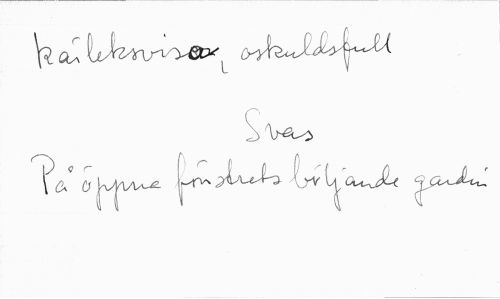 kärleksvisa, oskuldsfull
Svas
På öppna fönstrets böljande gardin